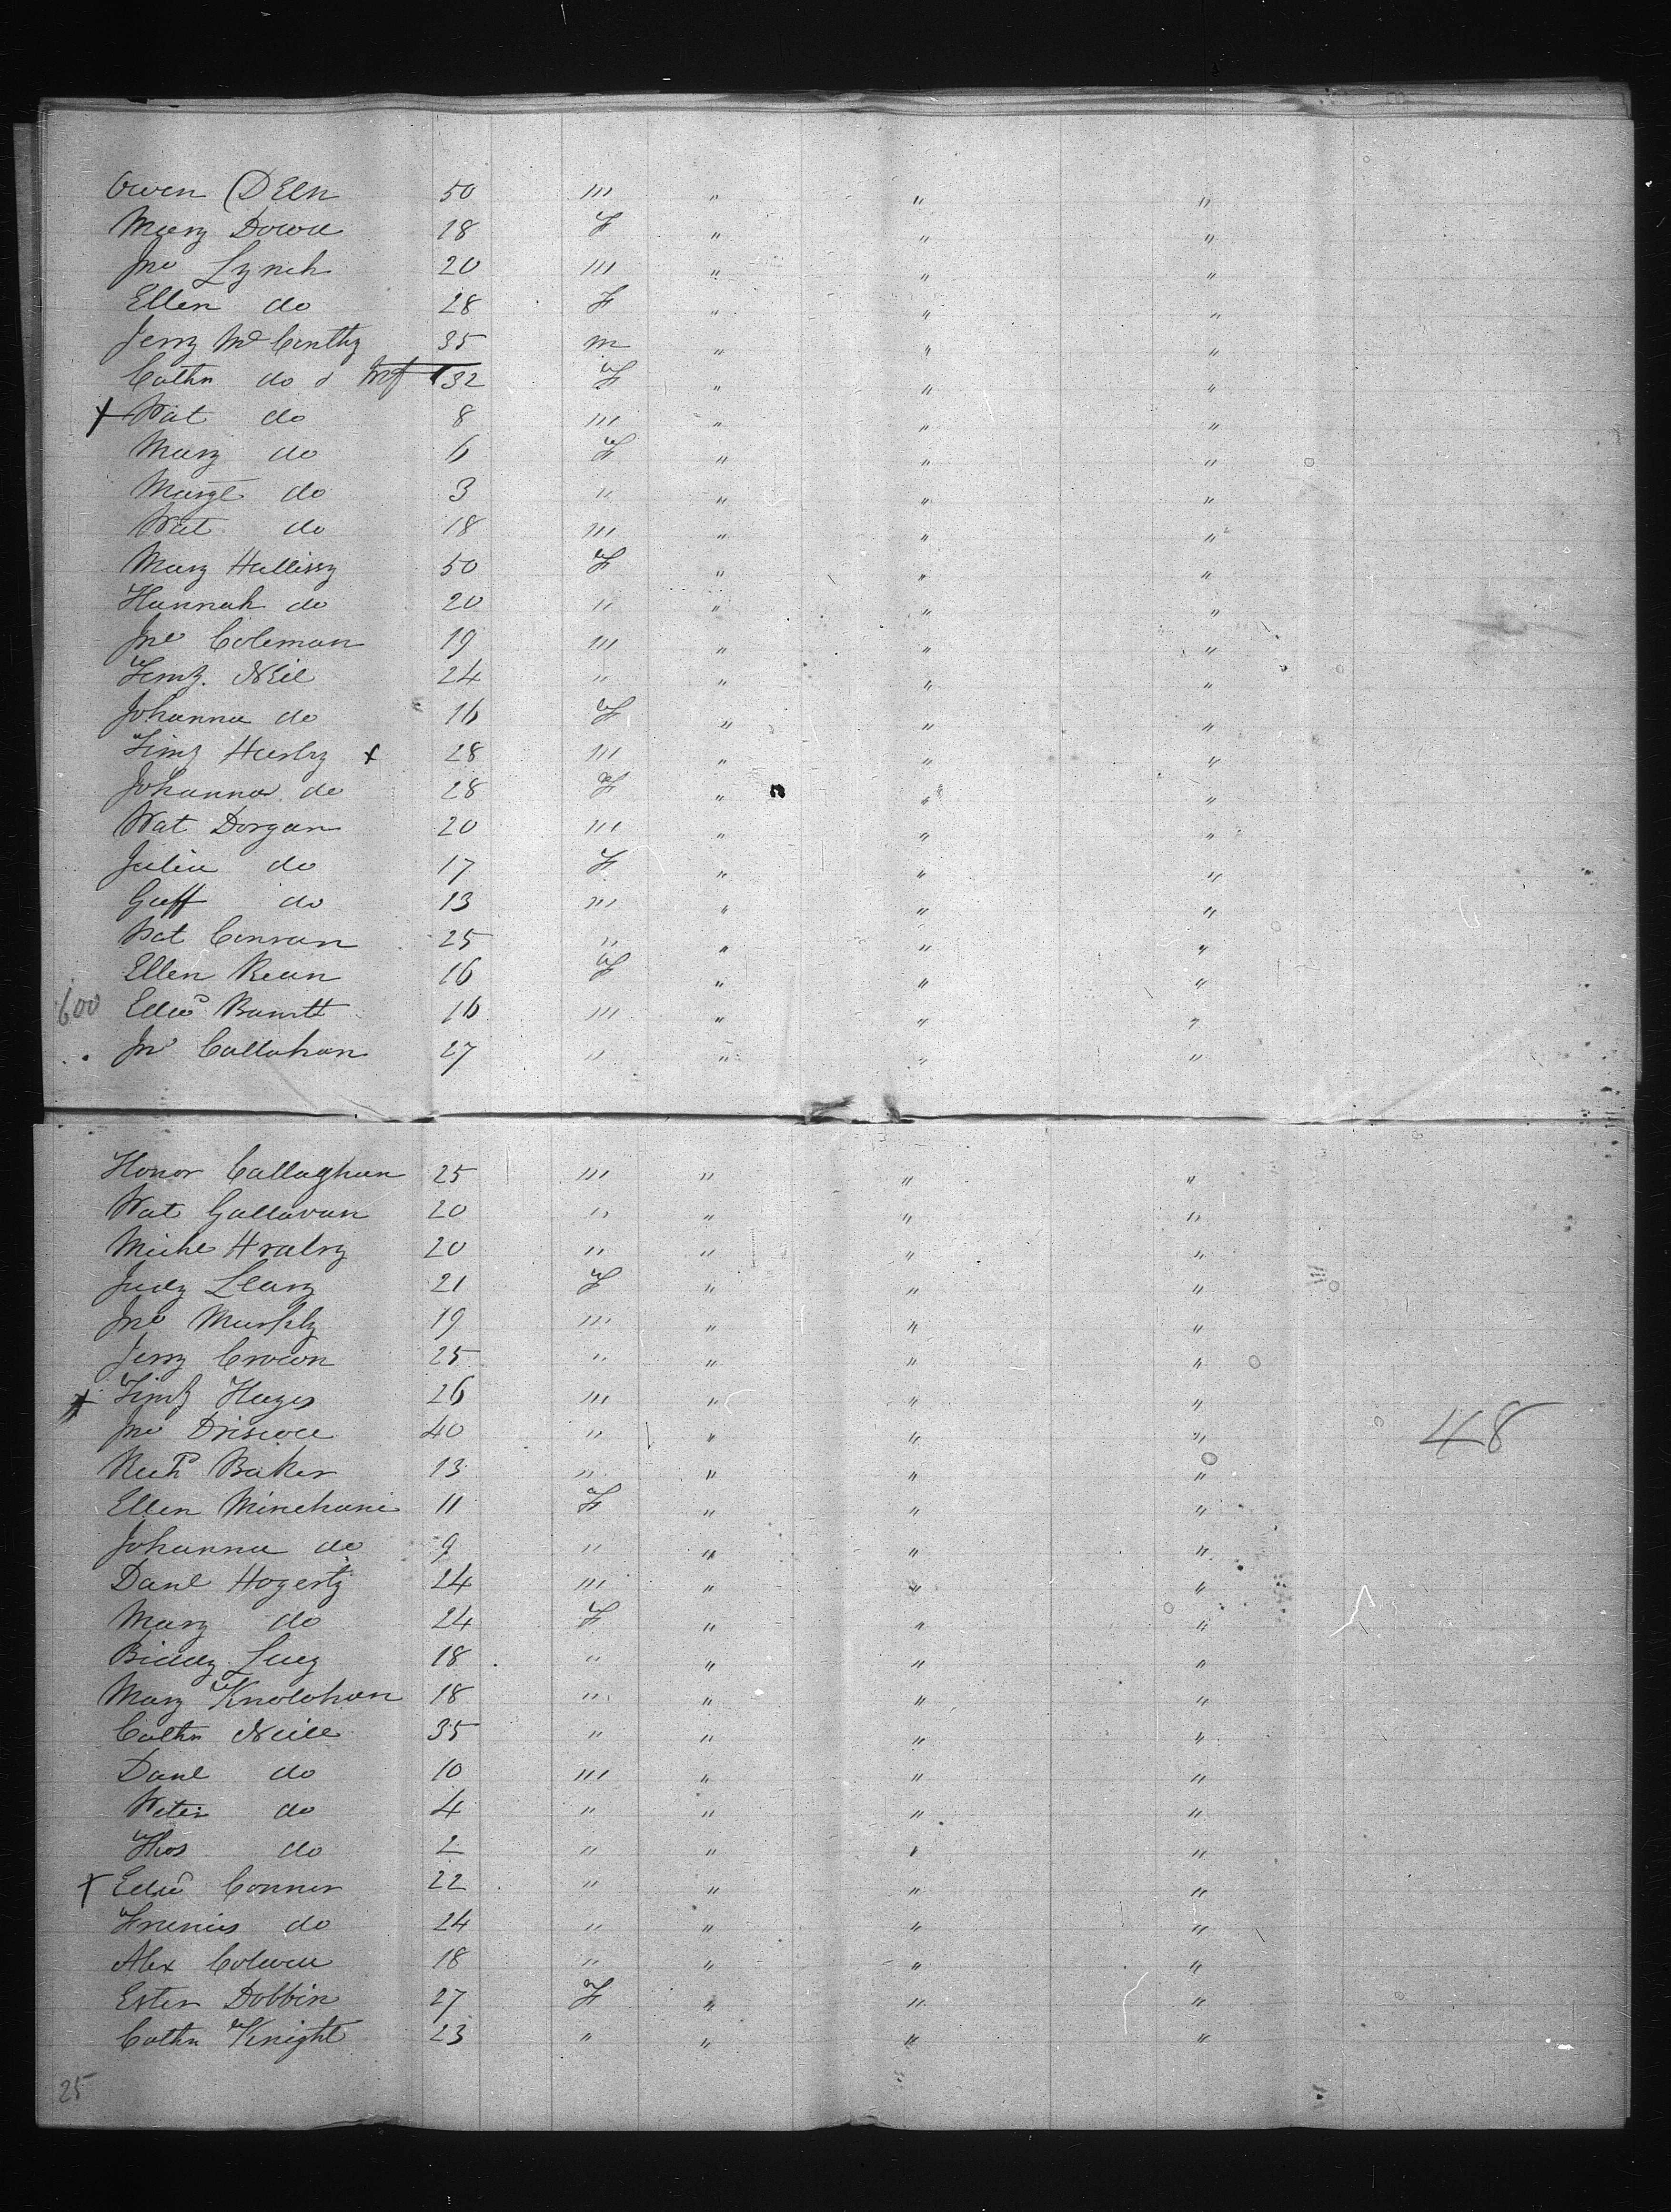 Owen 50 m " " "
Mary Dowd 18 F " " "
Jno Lynch 20 m " " "
Ellen do 28 F " " "
Jerry McCarthy 35 m " " "
Cathn do & Inf 32 F " " "
x Pat do 8 m " " "
Mary do 6 F " " "
Margt do 3 " " " "
Pat do 18 m " " "
Mary Hallissy 50 F " " "
Hannah do 20 " " " "
Jno Coleman 19 m " " "
Timy. Neil 24 " " " "
Johanna do 16 F " " "
Timy Hurley x 28 m " " "
Johanna do 28 F " " "
Pat Dorgan 20 m " " "
Julia do 17 F " " "
Geff do 13 m " " "
Pat Conran 25 " " " "
Ellen Rean 16 F " " "
600 Edwd Barrett 16 m " " "
Jno Callahan 27 " " " "
Honor Callaghan 25 m " " "
Pat Gallavan 20 " " " "
Michl 20 " " " "
Judy Leary 21 F " " "
Jno Murphy 19 m " " "
Jerry Crown 25 " " " "
x Timy Hayes 26 m " " "
Jno Driscoll 40 " " " " 48
Richd Baker 13 " " " "
Ellen Minehane 11 F " " "
Johanna do 9 " " " "
Danl Hogerty 24 m " " "
Mary do 24 F " " "
Biddy Lucy 18 " " " "
Mary Knolohan 18 " " " "
Cathn Neill 35 " " " "
Danl do 10 m " " "
Peter do 4 " " " "
Thos do 2 " " " "
x Edwd Connor 22 " " " "
Francis do 24 " " " "
Alex Colwell 18 " " " "
Ester Dobbin 27 F " " "
Cathn Knight 23 " " " "
25